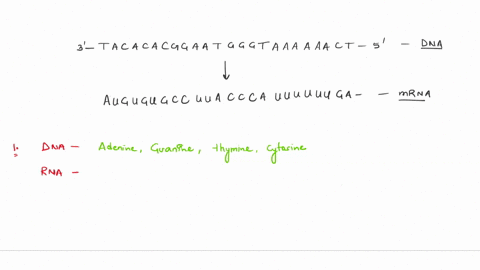 3'- TACACACGGAATGGGTAAAAAACT - 5' - DNA
AUGUGUGCCUUACCCAUUUUUUGA- - mRNA
1. DNA - Adenine, Guanine, thymine, cytosine
RNA -